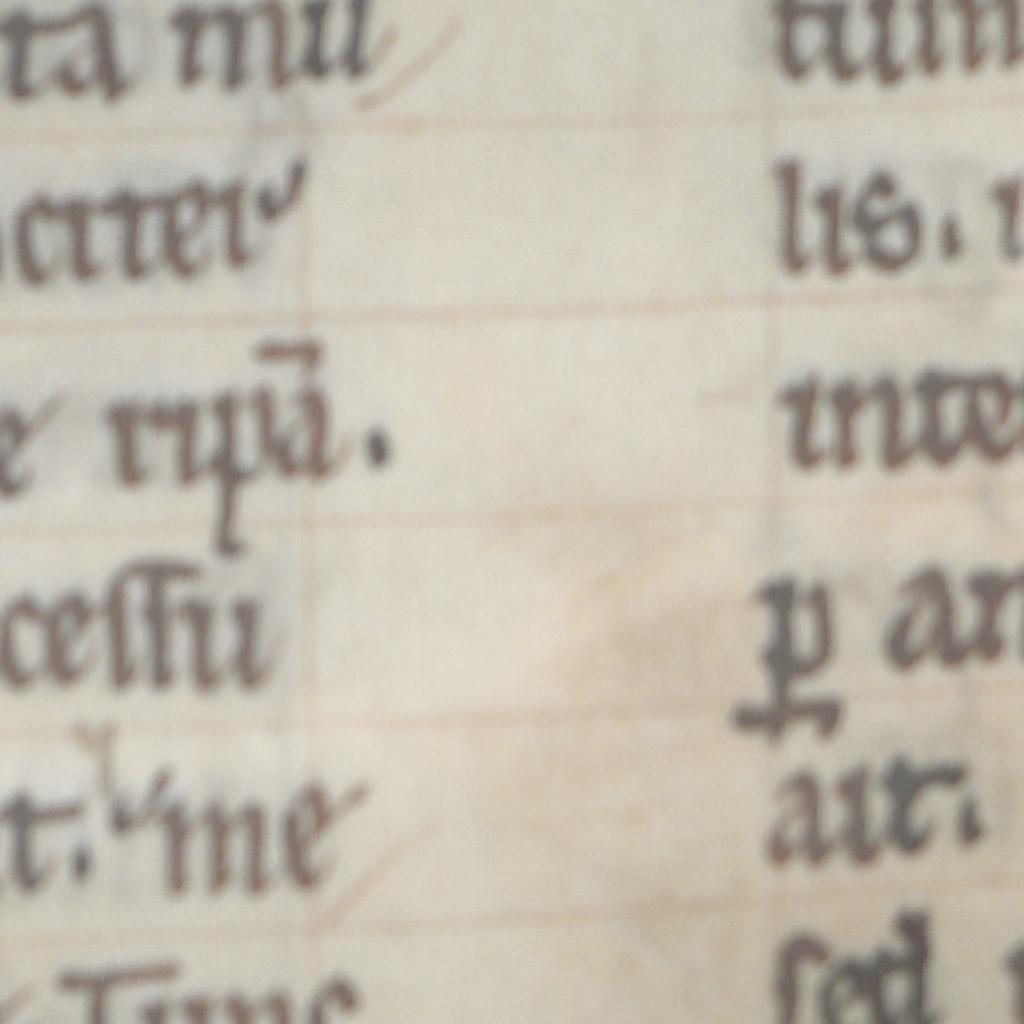 ta mu
citer
e ripā.
cessu
t. me
Tunc
tum
lis.
inte
ꝑ an
ait.
sed